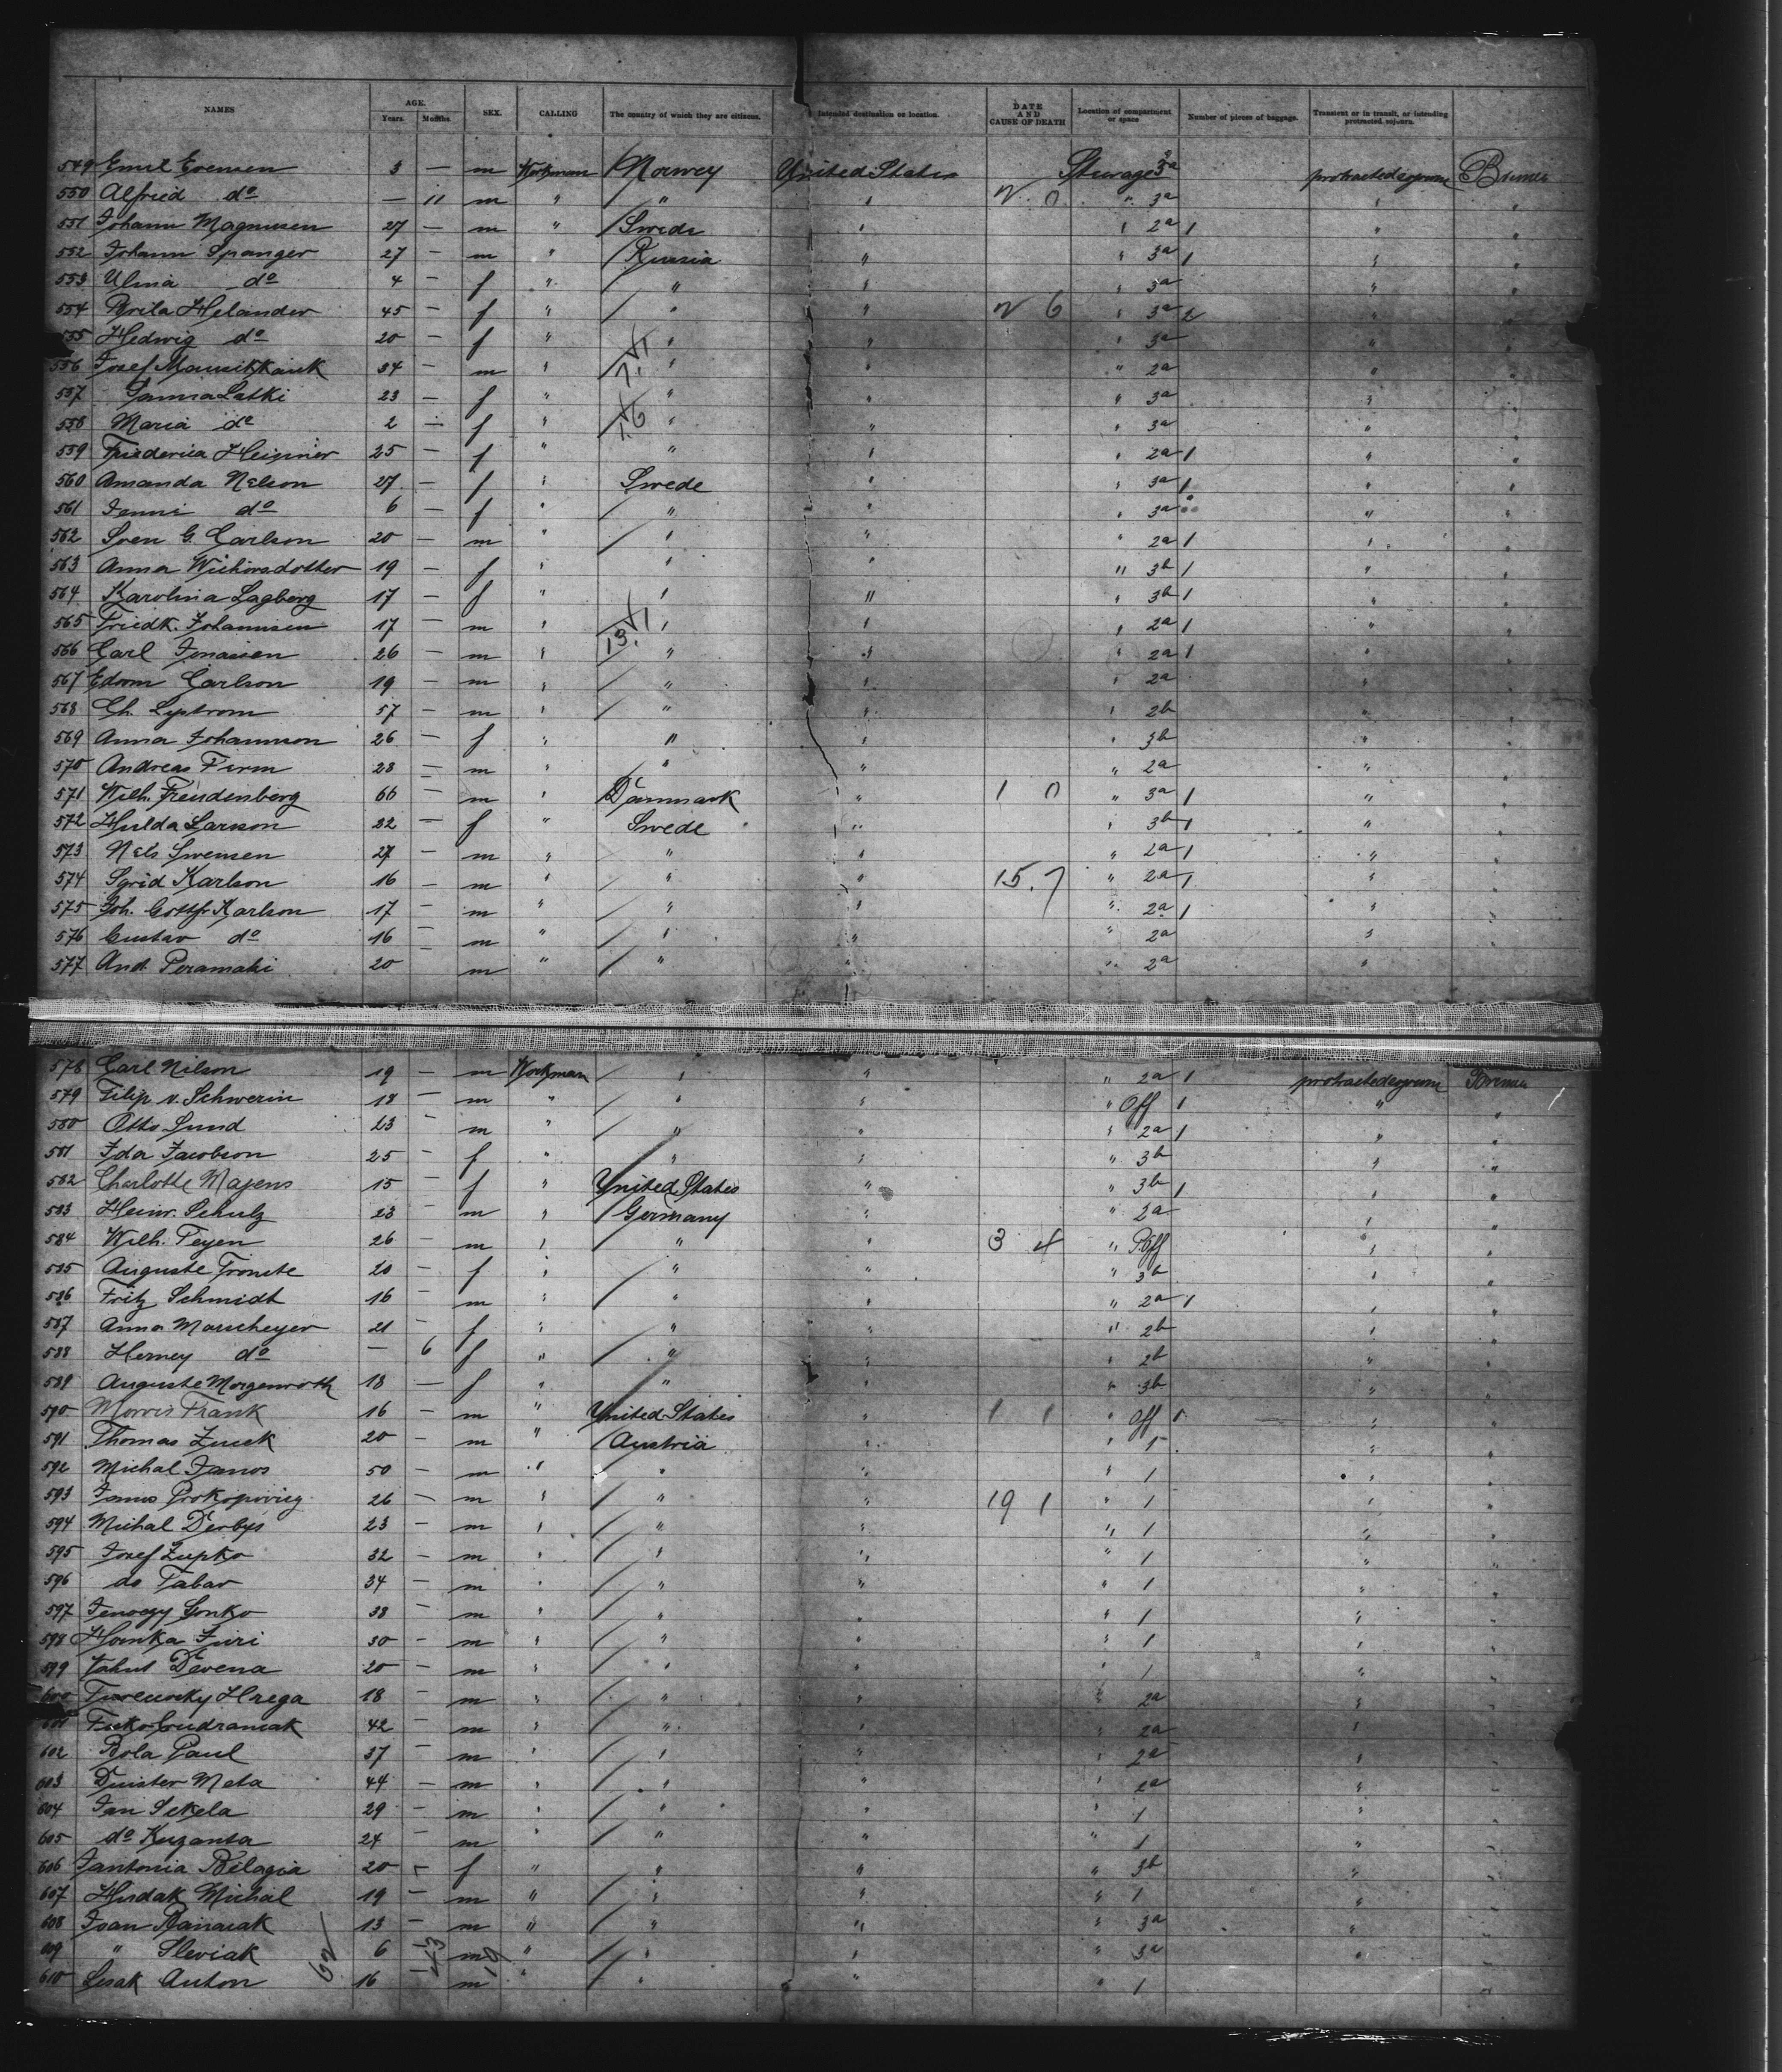 NAMES AGE. Years. Months. SEX. CALLING The country of which they are citizens. Intended destination or location. DATE AND CAUSE OF DEATH Location of compartment or space Number of pieces of baggage. Transient or in transit, or intending protracted sojourn.
549 Emil Evensen 3 — m Workman Norwey United States Sturage 3a protracted sojourn Bremen
550 Alfried do — 11 m " " " 2 0 " 3a " "
551 Johann Magnusen 27 — m " Swede " " 2a 1 " "
552 Johann Spanger 27 — m " Russia " " 3a 1 " "
553 Ulina do 4 — f " " " " 3a " "
554 Brita Helander 45 — f " " " 2 6 " 3a 2 " "
555 Hedwig do 20 — f " " " " 3a " "
556 Josef 34 — m " " " " 2a " "
557 Latki 23 — f " " " " 3a " "
558 Maria do 2 — f " " " " 3a " "
559 Friederica 25 — f " " " " 2a 1 " "
560 Amanda Nelson 27 — f " Swede " " 3a 1 " "
561 Fanni do 6 — f " " " " 3a " "
562 Sven G. Carlson 20 — m " " " " 2a 1 " "
563 Anna 19 — f " " " " 3b 1 " "
564 Karolina Lagberg 17 — f " " " " 3b 1 " "
565 Friedk. Johannsen 17 — m " " " " 2a 1 " "
566 Carl Jonassen 26 — m " " " " 2a 1 " "
567 Carlson 19 — m " " " " 2a " "
568 Ch. 57 — m " " " " 2b " "
569 Anna Johannson 26 — f " " " " 3b " "
570 Andreas Firm 28 — m " " " " 2a " "
571 Wilh. Freudenberg 66 — m " Danmark " 1 0 " 3a 1 " "
572 Hulda Larsson 22 — f " Swede " " 3b 1 " "
573 Nels Swensen 27 — m " " " " 2a 1 " "
574 Sgrid Karlson 16 — m " " " 15. 7 " 2a 1 " "
575 Joh. Gottfr Karlson 17 — m " " " " 2a 1 " "
576 Gustav do 16 — m " " " " 2a " "
577 And. Peramaki 20 m " " " " 2a "
578 Carl Nilson 19 — m Workman " " " 2a 1 protracted sojourn Bremen
579 Filip v. Schwerin 18 — m " " " " Off 1 " "
580 Otto Lund 23 m " " " " 2a 1 " "
581 Ida Jacobson 25 — f " " " " 3b " "
582 Charlotte Majens 15 — f " United States " " 3b 1 " "
583 Heinr. Schulz 23 — m " Germany " " 2a " "
584 Wilh. Teyen 26 — m " " " 3 4 " Off " "
585 Auguste 20 — f " " " " 3b " "
586 Fritz Schmidt 16 — m " " " " 2a 1 " "
587 Anna Marscheyer 21 — f " " " " 2b " "
588 Herney do — 6 f " " " " 2b " "
589 Auguste Morgenroth 18 — f " " " " 3b " "
590 Morris Frank 16 — m " United States " 1 1 " Off 1 " "
591 Thomas Zuck 20 — m " Austria " " 1 " "
592 Michal Janos 50 — m " " " " 1 " "
593 Janus Prokopovicz 26 — m " " " 19 1 " 1 " "
594 Michal Derbys 23 — m " " " " 1 " "
595 Josef Zupko 32 — m " " " " 1 " "
596 do Tabar 34 — m " " " " 1 " "
597 Gonko 38 — m " " " " 1 " "
598 Homka Juri 30 — m " " " " 1 " "
599 Devena 20 — m " " " " 1 " "
600 Hrega 18 — m " " " " 2a " "
601 42 — m " " " " 2a " "
602 Bola Paul 37 — m " " " " 2a " "
603 Duister Meta 44 — m " " " " 2a " "
604 Jan Sekela 29 — m " " " " 1 " "
605 do Kuzanta 24 — m " " " " 1 " "
606 Jantonia Belagia 20 — f " " " " 3b " "
607 Hudak Michal 19 — m " " " " 1 " "
608 Joan Banasak 13 — m " " " " 3a " "
609 " Sleviak 6 m " " " " 3a " "
610 Lesak Anton 16 m " " " " 1 "
62